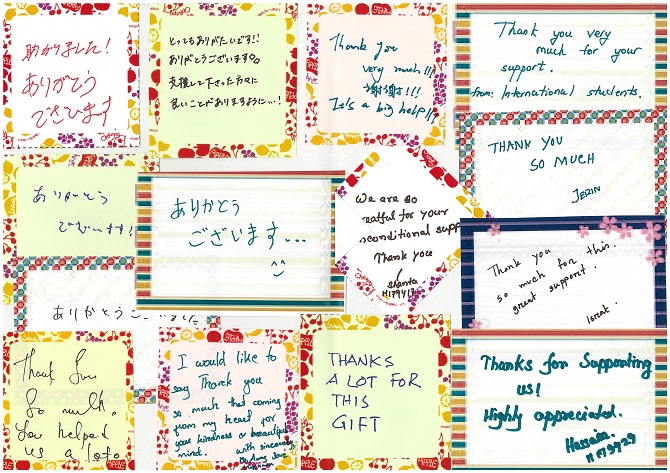 助かりました!
ありがとう
ございます
とってもありがたいです!!
ありがとうございます。
支援して下さった方々に
良いことがありますように…!
Thank you
very much!!!
謝謝!!!
It's a big help!!
Thank you very
much for your
support.
from: International students.
THANK YOU
SO MUCH
JERIN
ありがとう
ございます!
ありがとう
ございます...
We are so
eatful for your
conditional supp
Thank you
Shanta
Thank you
so much for this
great support.
Israt.
ありがとうございました
Thank you
So much.
You helped
us a lot.
I would like to
say Thank you
so much that coming
from my heart for
your kindness & beautiful
mind.
with sincerely
THANKS
A LOT FOR
THIS
GIFT
Thanks for Supporting
us!
Highly appreciated.
Hussain.
M179429